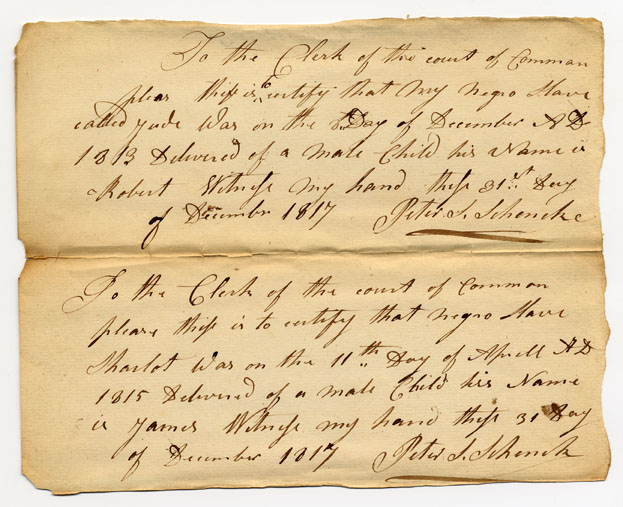 To the Clerk of the court of Common
pleas thiss is to certify that my negro Slave
called Jude was on the 8th Day of December AD
1813 Delivered of a male Child his Name is
Robert Witness my hand thiss 31st Day
of December 1817 Peter S. Schenck
To the Clerk of the court of Common
pleas thiss is to certify that negro Slave
Sharlot was on the 11th Day of Aprell AD
1815 Delivered of a male Child his Name
is James Witness my hand thiss 31 Day
of December 1817 Peter S. Schenck